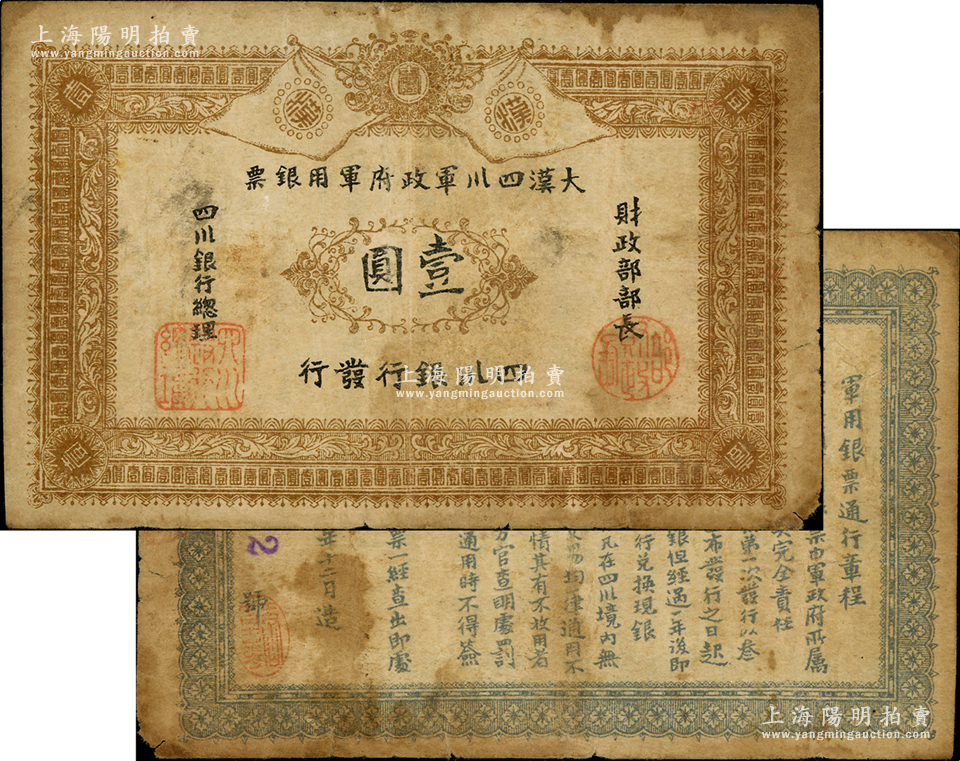 上海陽明拍賣
www.yangmingauction.com
圓
漢
漢
大漢四川軍政府軍用銀票
財政部部長
壹圓
四川銀行總理
四川銀行發行
上海陽明拍賣
www.yangmingauction.com
軍用銀票通行章程
票由軍政府所屬
完全責任
第一次發行以叁
布發行之日起
銀但經過一年後即
行兌換現銀
凡在四川境內無
均一律通用不
情其有不收用者
方官查明處罰
通用時不得簽
票一經查出即處
年十二月造
號
2
上海陽明拍賣
www.yangmingauction.com